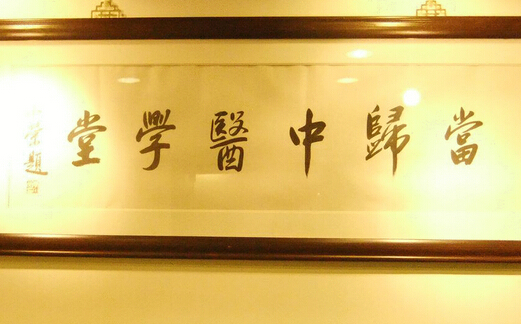 當歸中醫學堂
榮題